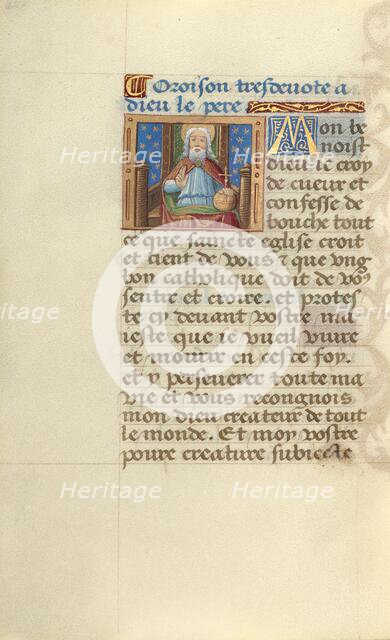 Oroison tresdevote a
dieu le pere
Mon be
noist
dieu ie croy
de cueur et
confesse de
bouche tout
ce que saincte eglise croit
et tient de vous & que ung
bon catholique doit de vo9
sentir et croire. et protes
te cy devant vostre ma
ieste que ie vueil vivre
et mourir en ceste foy.
et y perseverer toute ma
vie et vous recongnois
mon dieu createur de tout
le monde. Et moy vostre
povre creature subiecte
Heritage
Heritage
Heritage
Heritage
Heritage
Heritage
Heritage